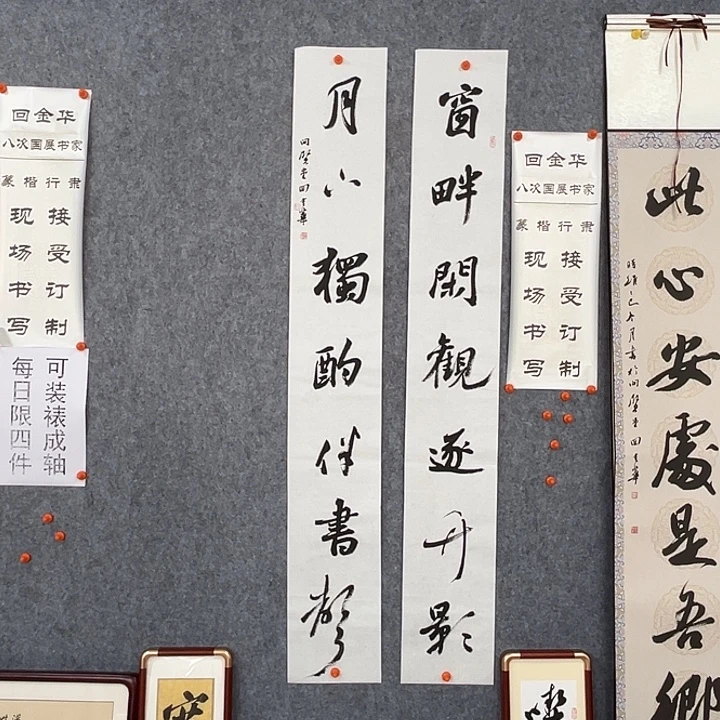 回金华
八次国展书家
篆楷行隶
接受订制
现场书写
可装裱成轴
每日限四件
窗畔閑觀逐舟影
月下獨酌伴書聲
回金华
八次国展书家
篆楷行隶
接受订制
现场书写
此心安處是吾鄉